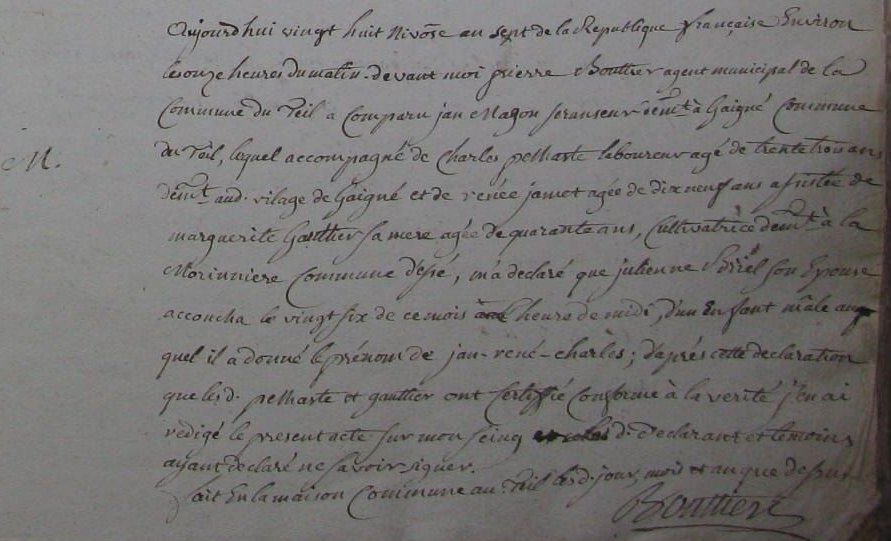 Aujourd'hui vingt huit Nivôse an sept de la Republique française Environ
les onze heures du matin devant moi pierre Bouttier agent municipal de la
Commune du Teil a comparu jan Magon demt à Gaigné Commune
du Teil, lequel accompagné de Charles pelharte laboureur agé de trente trois ans
demt aud. vilage de Gaigné et de renée jamot agée de dix neuf ans assistée de
marguerite Gautier sa mere agée de quarante ans, Cultivatrice demt à la
M.
Morinniere Commune d'essé, m'a declaré que julienne son Epouse
accoucha le vingt six de ce mois heure de midi, d'un Enfant mâle au
quel il a donné le prénom de jan-rené-charles; d'après cette declaration
que lesd. pelharte et gautier ont Certiffié Conforme à la verité j'en ai
redigé le present acte sur mon seing d. declarant et temoins
ayant declaré ne savoir signer.
fait En la maison Commune au Teil lesd. jour, mois et an que dessus
Bouttier